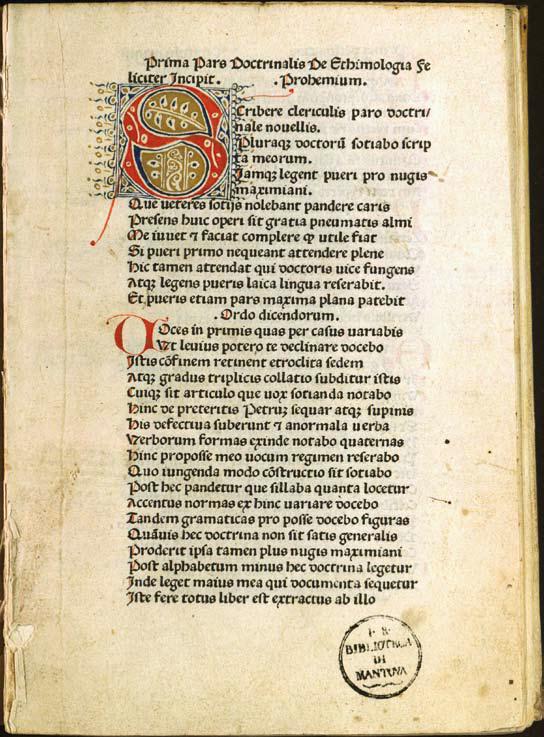 Prima Pars Doctrinalis De Ethimologia Fe
liciter Incipit. .Prohemium.
Scribere clericulis paro doctri/
nale nouellis.
Pluraqꝫ doctorũ sotiabo scrip
ta meorum.
Iamqꝫ legent pueri pro nugis
maximiani.
Que ueteres sotijs nolebant pandere caris
Presens huic operi sit gratia pneumatis almi
Me iuuet ⁊ faciat complere ꝙ utile fiat
Si pueri primo nequeant attendere plene
Hic tamen attendat qui doctoris uice fungens
Atqꝫ legens pueris laica lingua reserabit.
Et pueris etiam pars maxima plana patebit
.Ordo dicendorum.
Voces in primis quas per casus uariabis
Vt leuius potero te declinare docebo
Istis cõfinem retinent etroclita sedem
Atqꝫ gradus triplicis collatio subditur istis
Cuiqꝫ sit articulo que uox sotianda notabo
Hinc de preteritis Petruꝫ sequar atqꝫ supinis
His defectiua suberunt ⁊ anormala uerba
Verborum formas exinde notabo quaternas
Hinc proposse meo uocum regimen reserabo
Quo iungenda modo cõstructio sit sotiabo
Post hec pandetur que sillaba quanta locetur
Accentus normas ex hinc uariare docebo
Tandem gramaticas pro posse docebo figuras
Quãuis hec doctrina non sit satis generalis
Proderit ipsa tamen plus nugis maximiani
Post alphabetum minus hec doctrina legetur
Inde leget maius mea qui documenta sequetur
Iste fere totus liber est extractus ab illo
BIBLIOTECA
DI
MANTOVA